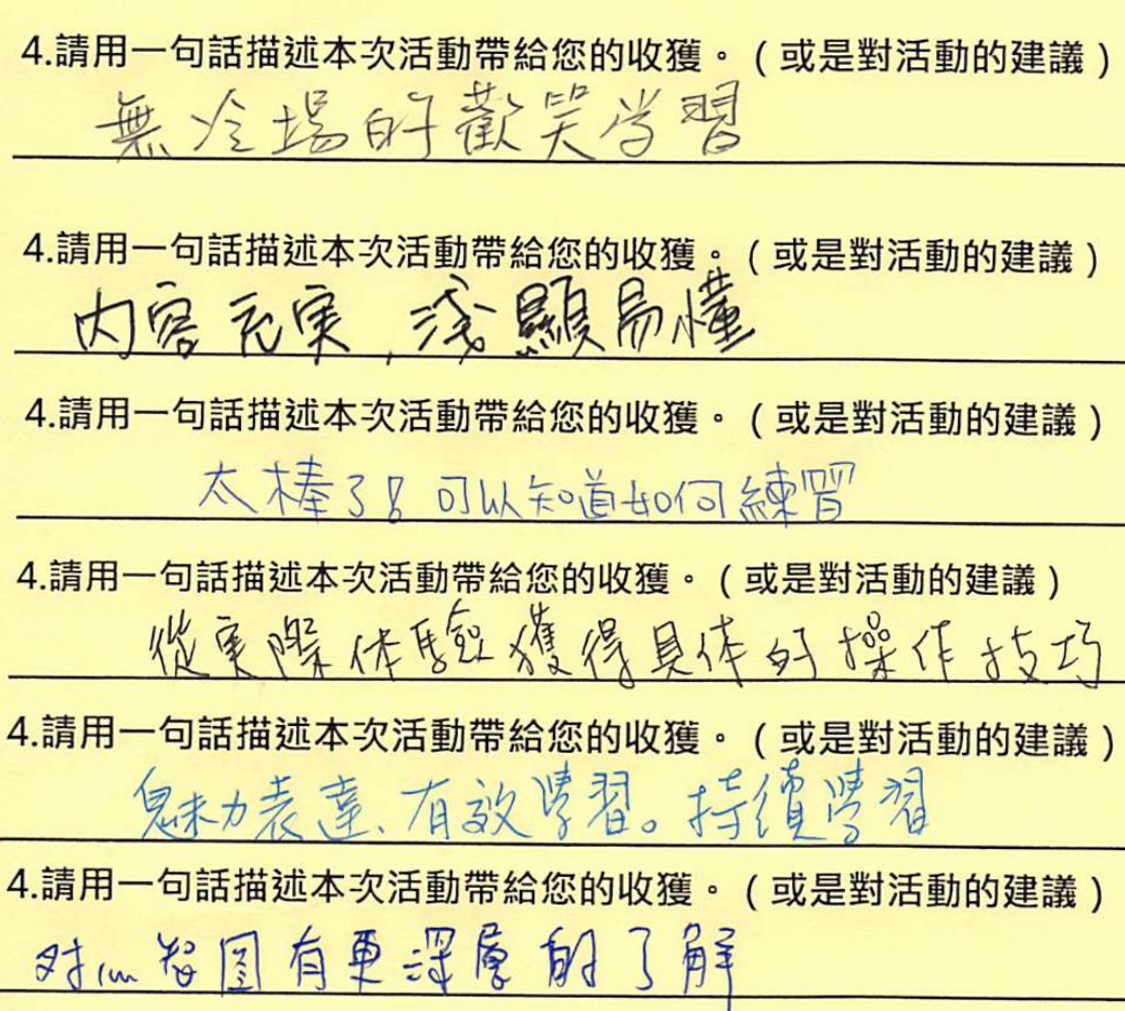 4.請用一句話描述本次活動帶給您的收獲。（或是對活動的建議）
無冷場的歡笑学習
4.請用一句話描述本次活動帶給您的收獲。（或是對活動的建議）
内容充実,淺顯易懂
4.請用一句話描述本次活動帶給您的收獲。（或是對活動的建議）
太棒了!可以知道如何練習
4.請用一句話描述本次活動帶給您的收獲。（或是對活動的建議）
從実際体驗獲得具体的操作技巧
4.請用一句話描述本次活動帶給您的收獲。（或是對活動的建議）
魅力表達、有效學習。持續學習
4.請用一句話描述本次活動帶給您的收獲。（或是對活動的建議）
对心智图有更深層的了解